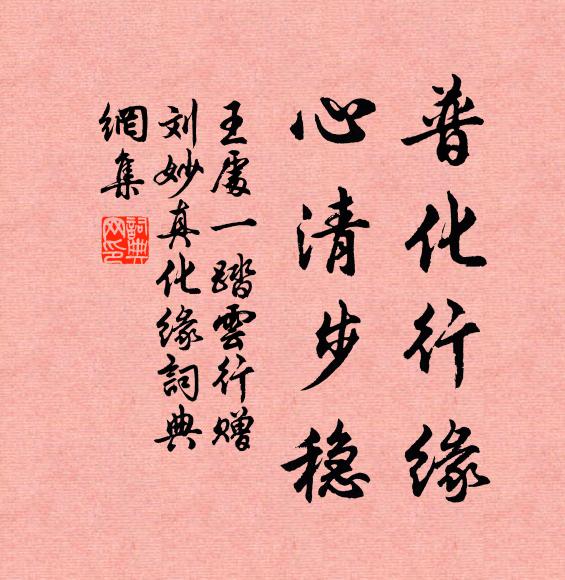 普化行缘
心清步稳
王處一踏雲行赠
刘妙真化缘詞典
網集
詞典
网印